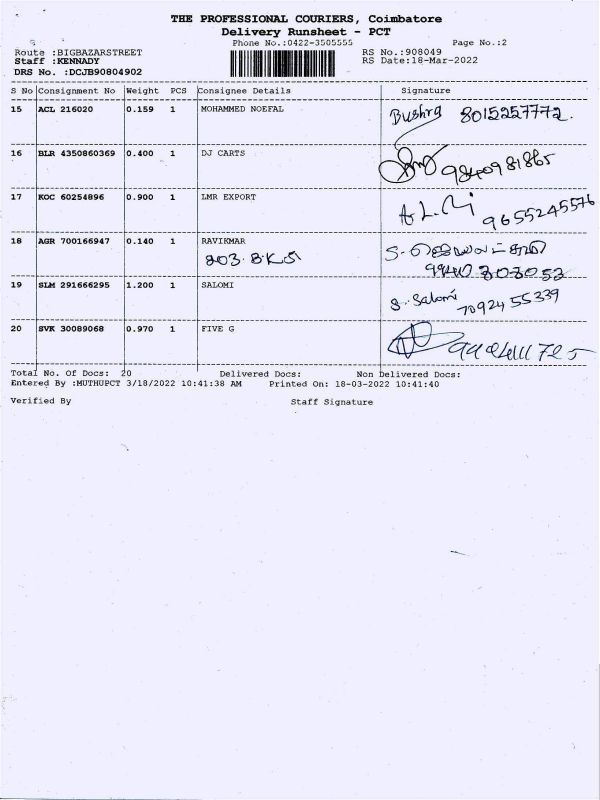 THE PROFESSIONAL COURIERS, Coimbatore
Delivery Runsheet - PCT
Phone No.:0422-3505555 Page No.:2
Route :BIGBAZARSTREET RS No.:908049
Staff :KENNADY RS Date:18-Mar-2022
DRS No. :DCJB90804902
S No Consignment No Weight PCS Consignee Details Signature
15 ACL 216020 0.159 1 MOHAMMED NOEFAL Bushra 8015257772.
16 BLR 4350860369 0.400 1 DJ CARTS 9840981865
17 KOC 60254896 0.900 1 LMR EXPORT 9655245576
18 AGR 700166947 0.140 1 RAVIKMAR
19 SLM 291666295 1.200 1 SALOMI S. Salomi 7092455339
20 SVK 30089068 0.970 1 FIVE G
Total No. Of Docs: 20 Delivered Docs: Non Delivered Docs:
Entered By :MUTHUPCT 3/18/2022 10:41:38 AM Printed On: 18-03-2022 10:41:40
Verified By Staff Signature